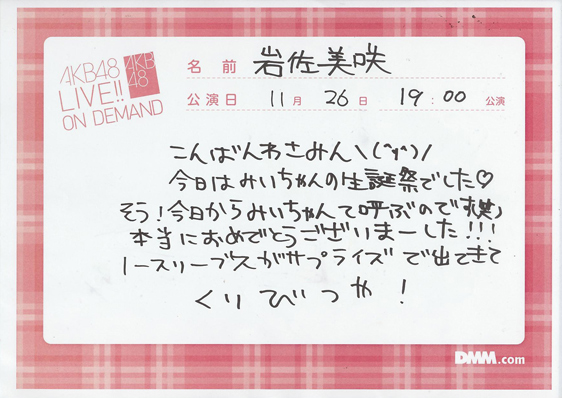 AKB48
LIVE!!
ON DEMAND
AKB
48
名前 岩佐美咲
公演日 11月26日 19:00 公演
こんばんわさみん\(^y^)/
今日はみいちゃんの生誕祭でした♡
そう!今日からみいちゃんて呼ぶのです(笑)
本当におめでとうございまーした!!!
ノースリーブスがサプライズで出てきて
くりびつや!
DMM.com